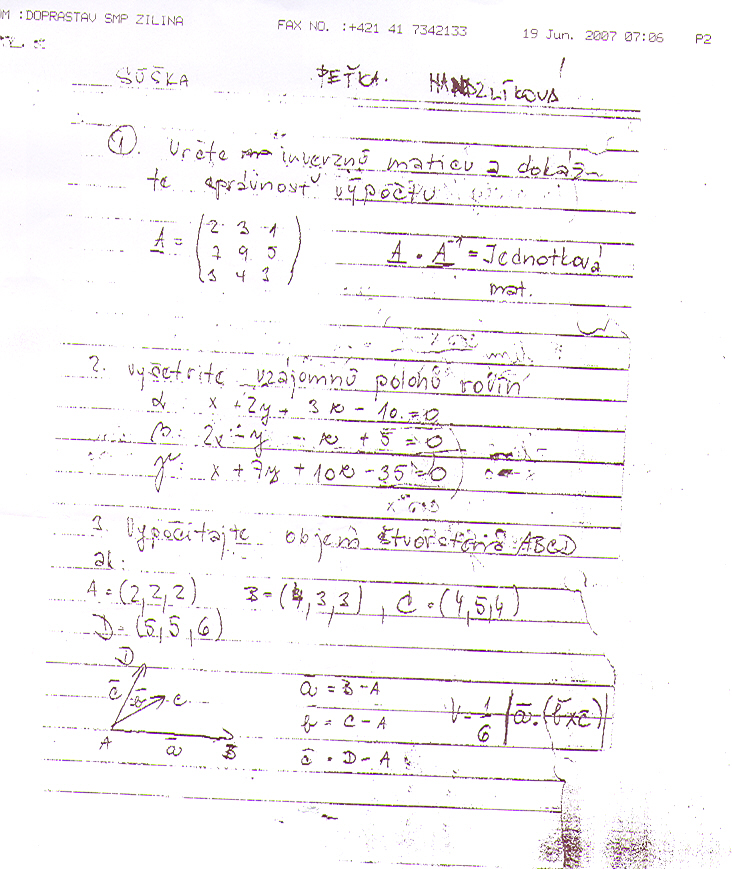 OM :DOPRASTAV SMP ZILINA FAX NO. :+421 41 7342133 19 Jun. 2007 07:06 P2
SÚŠKA PEŤKA. HANDZLÍKOVÁ
1. Určte inverznú maticu a dokáž-
te správnosť výpočtu
A = (2 3 1
7 9 5
3 4 3)
A . A⁻¹ = Jednotková
mat.
2. vyšetrite vzájomnú polohu rovín
α: x + 2y + 3z - 10 = 0
β: 2x - y - z + 5 = 0
γ: x + 7y + 10z - 35 = 0
3. Vypočítajte objem štvorstena ABCD
ak:
A = (2,2,2) B = (4,3,3), C = (4,5,4)
D = (5,5,6)
D
c̄ b̄ C
A ā B
ā = B - A
b = C - A
c̄ = D - A
V = 1/6 |ā.(b̄×c̄)|